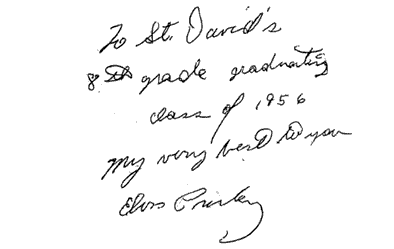 To St. David's
8th grade graduating
class of 1956
My very best to you
Elvis Presley